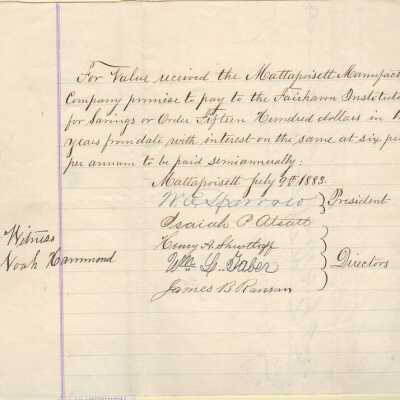 For Value received the Mattapoisett Manufac
Company promise to pay to the Fairhaven Institut
for Savings or Order Fifteen Hundred dollars in
years from date, with interest on the same at six pe
per annum to be paid semiannually:
Mattapoisett July 9th 1883.
W. E. Sparrow } President
Isaiah P. Atsatt
Witness
Noah Hammond
Henry A. Shurtleff
Wm L. Faber } Directors
James B Ransom